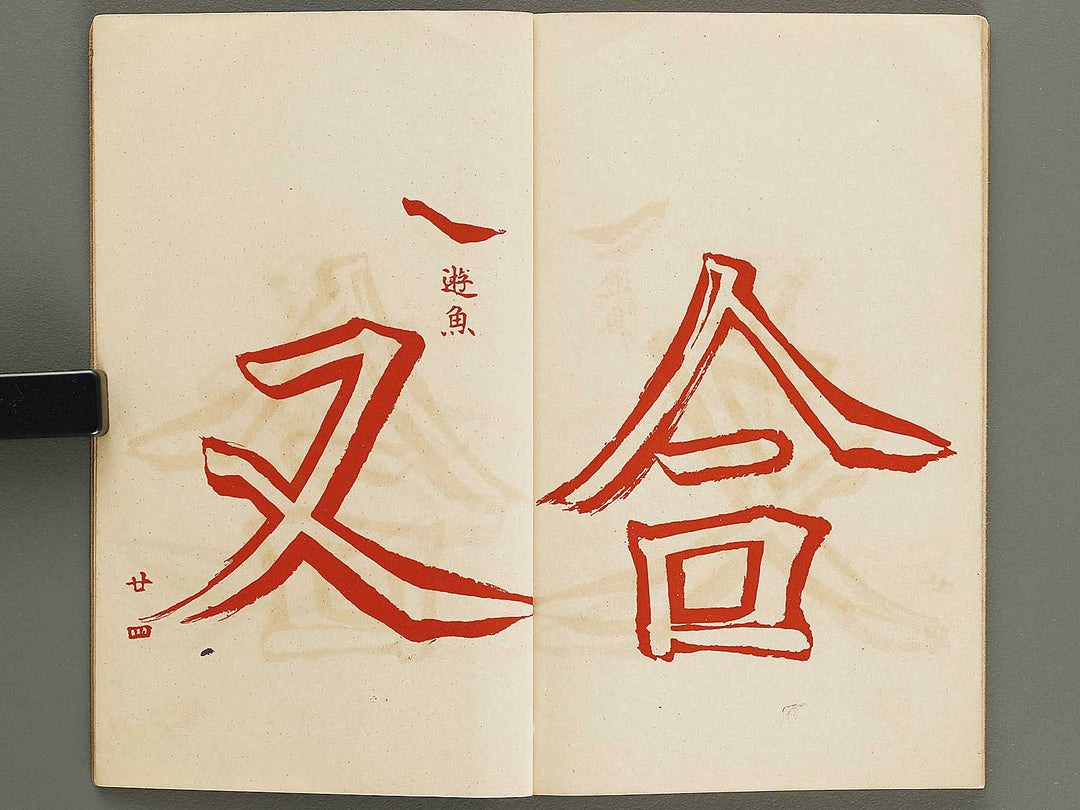 合
遊魚
又
廿四